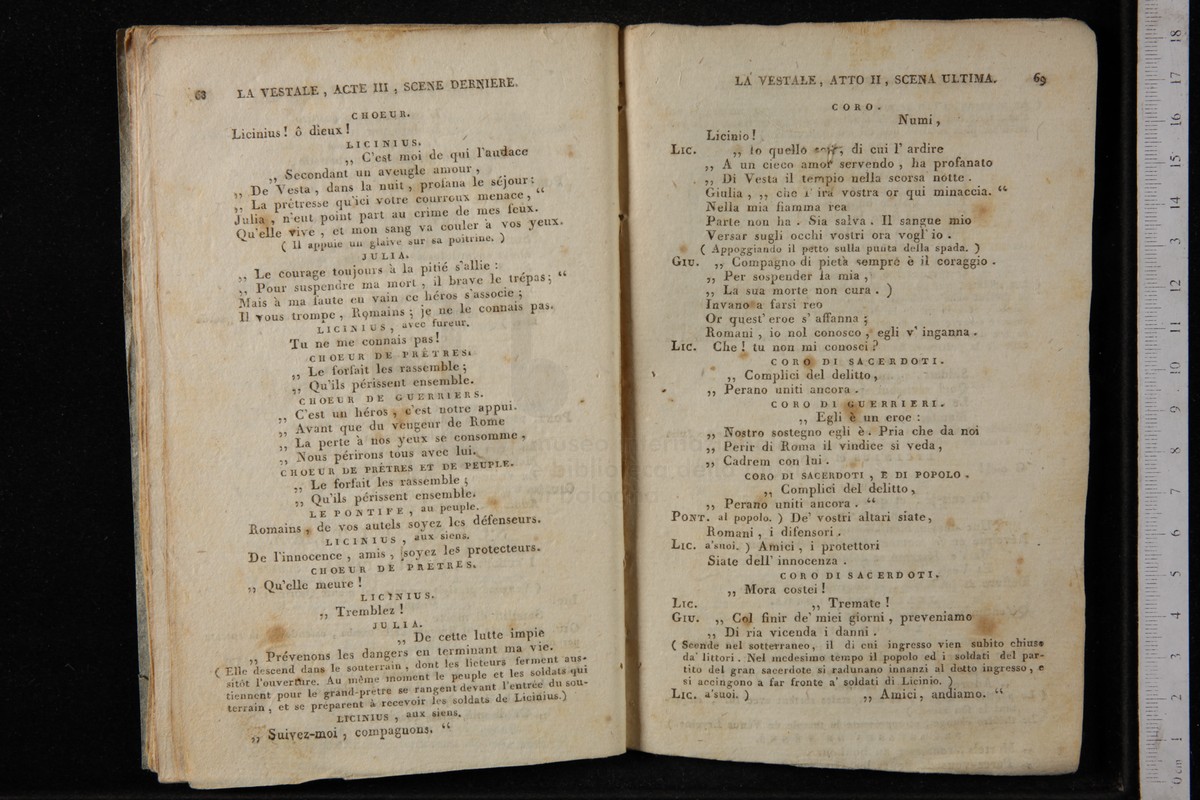 68 LA VESTALE , ACTE III , SCENE DERNIERE.
CHOEUR.
Licinius ! ô dieux !
LICINIUS.
,, C'est moi de qui l'audace
,, Secondant un aveugle amour ,
,, De Vesta , dans la nuit , profana le séjour :
,, La prêtresse qu'ici votre courroux menace , “
Julia , n'eut point part au crime de mes feux.
Qu'elle vive , et mon sang va couler à vos yeux.
( Il appuie un glaive sur sa poitrine. )
JULIA.
,, Le courage toujours à la pitié s'allie :
,, Pour suspendre ma mort , il brave le trépas ; “
Mais à ma faute en vain ce héros s'associe ;
Il vous trompe , Romains ; je ne le connais pas.
LICINIUS , avec fureur.
Tu ne me connais pas !
CHOEUR DE PRÊTRES.
,, Le forfait les rassemble ;
,, Qu'ils périssent ensemble.
CHOEUR DE GUERRIERS.
,, C'est un héros , c'est notre appui.
,, Avant que du vengeur de Rome
,, La perte à nos yeux se consomme ,
,, Nous périrons tous avec lui.
CHOEUR DE PRÊTRES ET DE PEUPLE.
,, Le forfait les rassemble ;
,, Qu'ils périssent ensemble.
LE PONTIFE , au peuple.
Romains , de vos autels soyez les défenseurs.
LICINIUS , aux siens.
De l'innocence , amis , soyez les protecteurs.
CHOEUR DE PRETRES.
,, Qu'elle meure !
LICINIUS.
,, Tremblez !
JULIA.
,, De cette lutte impie
,, Prévenons les dangers en terminant ma vie.
( Elle descend dans le souterrain , dont les licteurs ferment aus-
sitôt l'ouverture. Au même moment le peuple et les soldats qui
tiennent pour le grand-prêtre se rangent devant l'entrée du sou-
terrain , et se préparent à recevoir les soldats de Licinius.)
LICINIUS , aux siens.
,, Suivez-moi , compagnons. “
LA VESTALE , ATTO II , SCENA ULTIMA. 69
CORO.
Numi ,
Licinio !
LIC. ,, Io quello di cui l' ardire
,, A un cieco amor servendo , ha profanato
,, Di Vesta il tempio nella scorsa notte .
Giulia , ,, che l' ira vostra or qui minaccia. “
Nella mia fiamma rea
Parte non ha . Sia salva . Il sangue mio
Versar sugli occhi vostri ora vogl' io .
( Appoggiando il petto sulla punta della spada. )
GIU. ,, Compagno di pietà sempre è il coraggio .
,, Per sospender la mia ,
,, La sua morte non cura . )
Invano a farsi reo
Or quest' eroe s' affanna ;
Romani , io nol conosco , egli v' inganna .
LIC. Che ! tu non mi conosci ?
CORO DI SACERDOTI.
,, Complici del delitto ,
,, Perano uniti ancora .
CORO DI GUERRIERI.
,, Egli è un eroe :
,, Nostro sostegno egli è . Pria che da noi
,, Perir di Roma il vindice si veda ,
,, Cadrem con lui .
CORO DI SACERDOTI , E DI POPOLO .
,, Complici del delitto ,
,, Perano uniti ancora . “
PONT. al popolo. ) De' vostri altari siate ,
Romani , i difensori .
LIC. a'suoi. ) Amici , i protettori
Siate dell' innocenza .
CORO DI SACERDOTI.
,, Mora costei !
LIC. ,, Tremate !
GIU. ,, Col finir de' miei giorni , preveniamo
,, Di ria vicenda i danni .
( Scende nel sotterraneo, il di cui ingresso vien subito chiuso
da' littori . Nel medesimo tempo il popolo ed i soldati del par-
tito del gran sacerdote si radunano innanzi al detto ingresso , e
si accingono a far fronte a' soldati di Licinio. )
LIC. a'suoi. ) ,, Amici , andiamo. “
0 cm 1 2 3 4 5 6 7 8 9 10 11 12 13 14 15 16 17 18